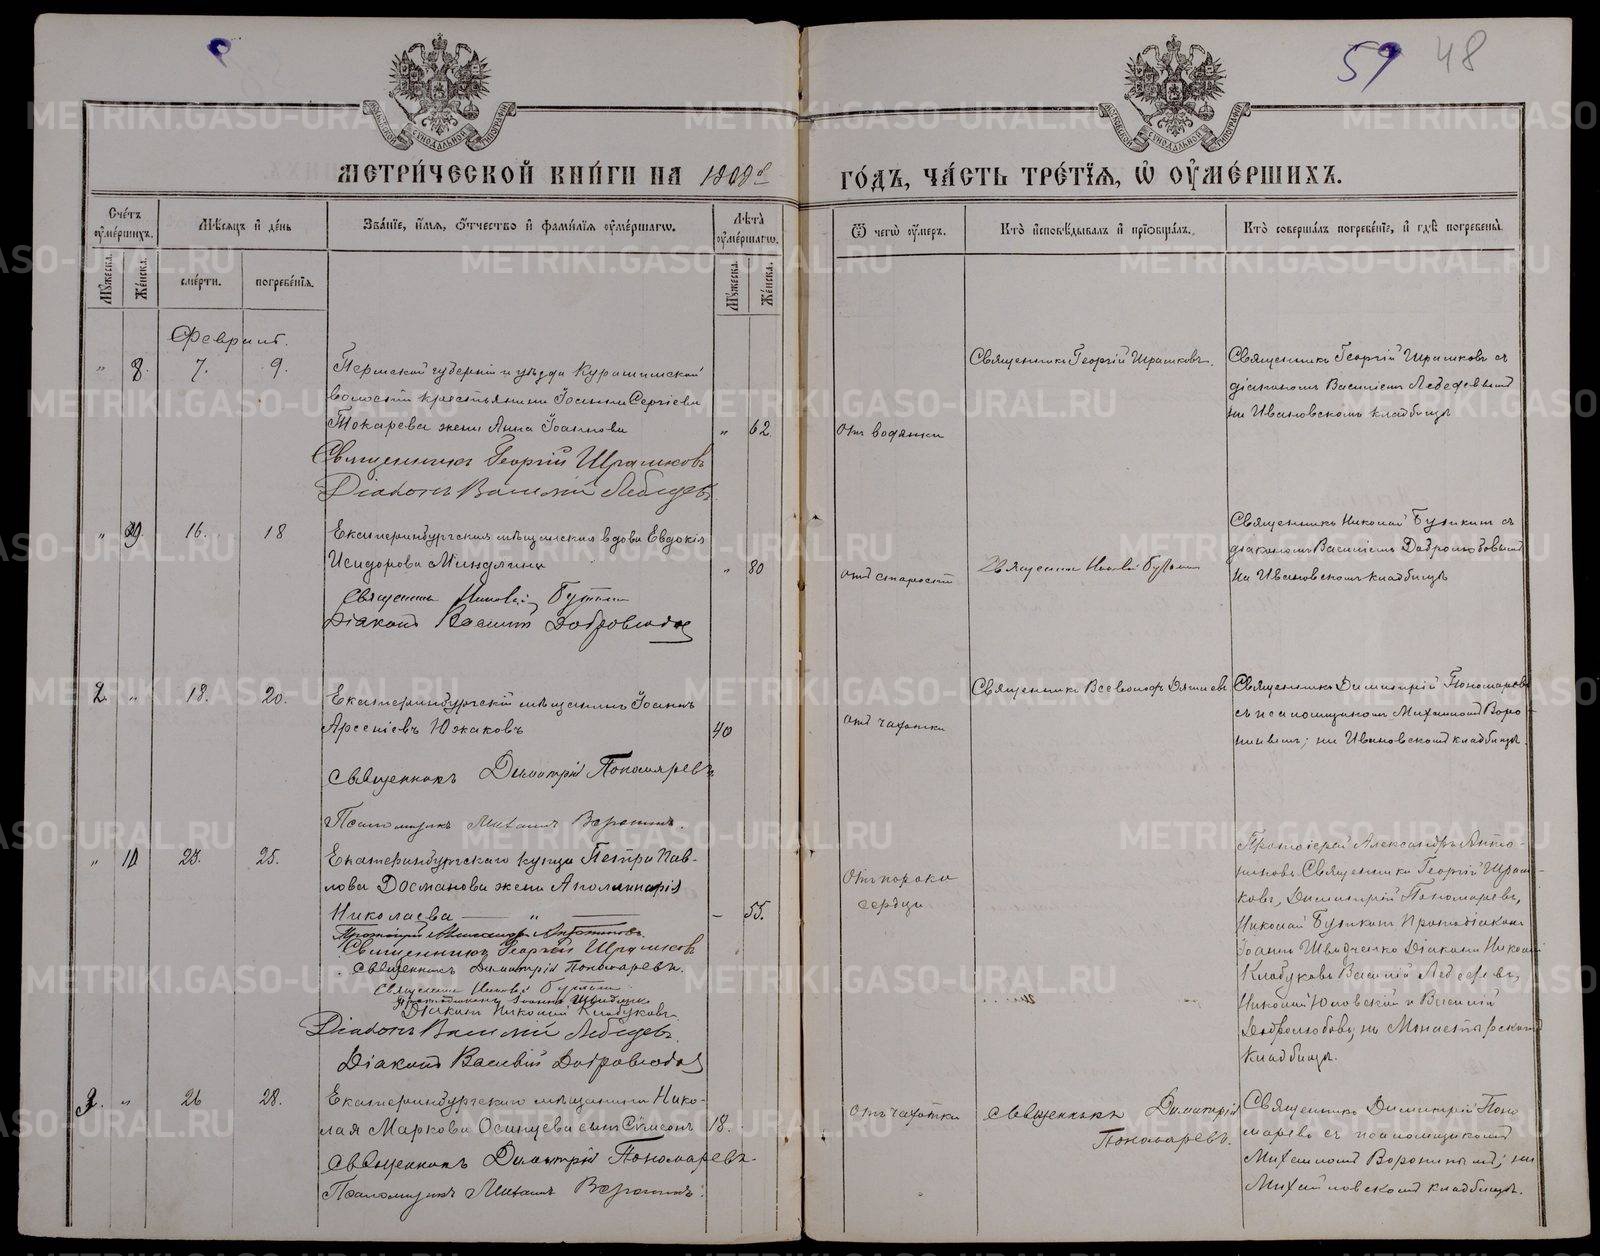 59 48
МОСКОВСКОЙ СУНОДАЛЬНОЙ ТИПОГРАФІИ
МОСКОВСКОЙ СУНОДАЛЬНОЙ ТИПОГРАФІИ
МЕТРИ́ЧЕСКОЙ КНИ́ГИ НА 1909й ГО́ДЪ, ЧА́СТЬ ТРЕ́ТЇѦ, Ѡ ОУ҆МЕ́РШИХЪ.
Сче́тъ оу҆ме́ршихъ.
Мꙋ́жеска.
Же́нска.
Мѣ́сѧцъ и҆ де́нь
сме́рти.
погребе́нїѧ.
Зва́нїе, и҆́мѧ, ѻ҆́тчество и҆ фами́лїѧ оу҆ме́ршагѡ.
Лѣ́та оу҆ме́ршагѡ.
Мꙋ́жеска.
Же́нска.
Ѿ чегѡ̀ оу҆́меръ.
Кто̀ и҆сповѣ́дывалъ и҆ прїѡбща́лъ.
Кто̀ соверша́лъ погребе́нїе, и҆ гдѣ̀ погребены̀.
Февраль.
" 8. 7. 9.
Пермской губерніи и уѣзда Курашимской
волости крестьянина Іоанна Сергіева
Токарева жена Анна Іоаннова " 62.
Священникъ Георгій Шрамковъ
Діаконъ Василій Лебедевъ
отъ водянки
Священникъ Георгій Шрамковъ.
Священникъ Георгій Шрамковъ съ
діакономъ Василіемъ Лебедевымъ
на Ивановскомъ кладбищѣ
" 9. 16. 18
Екатеринбургская мѣщанская вдова Евдокія
Исидорова Миндлина " 80
Священникъ Николай Буткинъ
Діаконъ Василій Добролюбовъ
отъ старости
Священникъ Николай Буткинъ
Священникъ Николай Буткинъ съ
діакономъ Василіемъ Добролюбовымъ
на Ивановскомъ кладбищѣ
2. " 18. 20.
Екатеринбургскій мѣщанинъ Іоаннъ
Арсеніевъ Южаковъ 40
Священникъ Димитрій Пономаревъ
Псаломщикъ Михаилъ Воронинъ.
отъ чахотки
Священникъ Всеволодъ
Священникъ Димитрій Пономаревъ
съ псаломщикомъ Михаиломъ Воро-
нинымъ; на Ивановскомъ кладбищѣ.
" 10 23. 25.
Екатеринбургскаго купца Петра Пав-
лова Досманова жена Аполлинарія
Николаева — " — - 55.
Протоіерей Александръ Антониновъ
Священникъ Георгій Шрамковъ
Священникъ Димитрій Пономаревъ.
Священникъ Николай Буткинъ
Протодіаконъ Іоаннъ Швидченко
Діаконъ Николай Кладуковъ
Діаконъ Василій Лебедевъ.
Діаконъ Василій Добролюбовъ
Отъ порока
сердца
Протоіерей Александръ Анто-
ниновъ Священники Георгій Шрам-
ковъ, Димитрій Пономаревъ,
Николай Буткинъ Протодіаконъ
Іоаннъ Швидченко Діаконы Николай
Кладуковъ Василій Лебедевъ,
Николай и Василій
Добролюбовъ, на Монастырскомъ
кладбищѣ.
3. " 26 28.
Екатеринбургскаго мѣщанина Нико-
лая Маркова Осинцева сынъ Сѵмеонъ 18.
Священникъ Димитрій Пономаревъ
Псаломщикъ Михаилъ Воронинъ.
Отъ чахотки
Священникъ Димитрій
Пономаревъ.
Священникъ Димитрій Поно
маревъ съ псаломщикомъ
Михаиломъ Воронинымъ; на
Михайловскомъ кладбищѣ.
METRIKI.GASO-URAL.RU